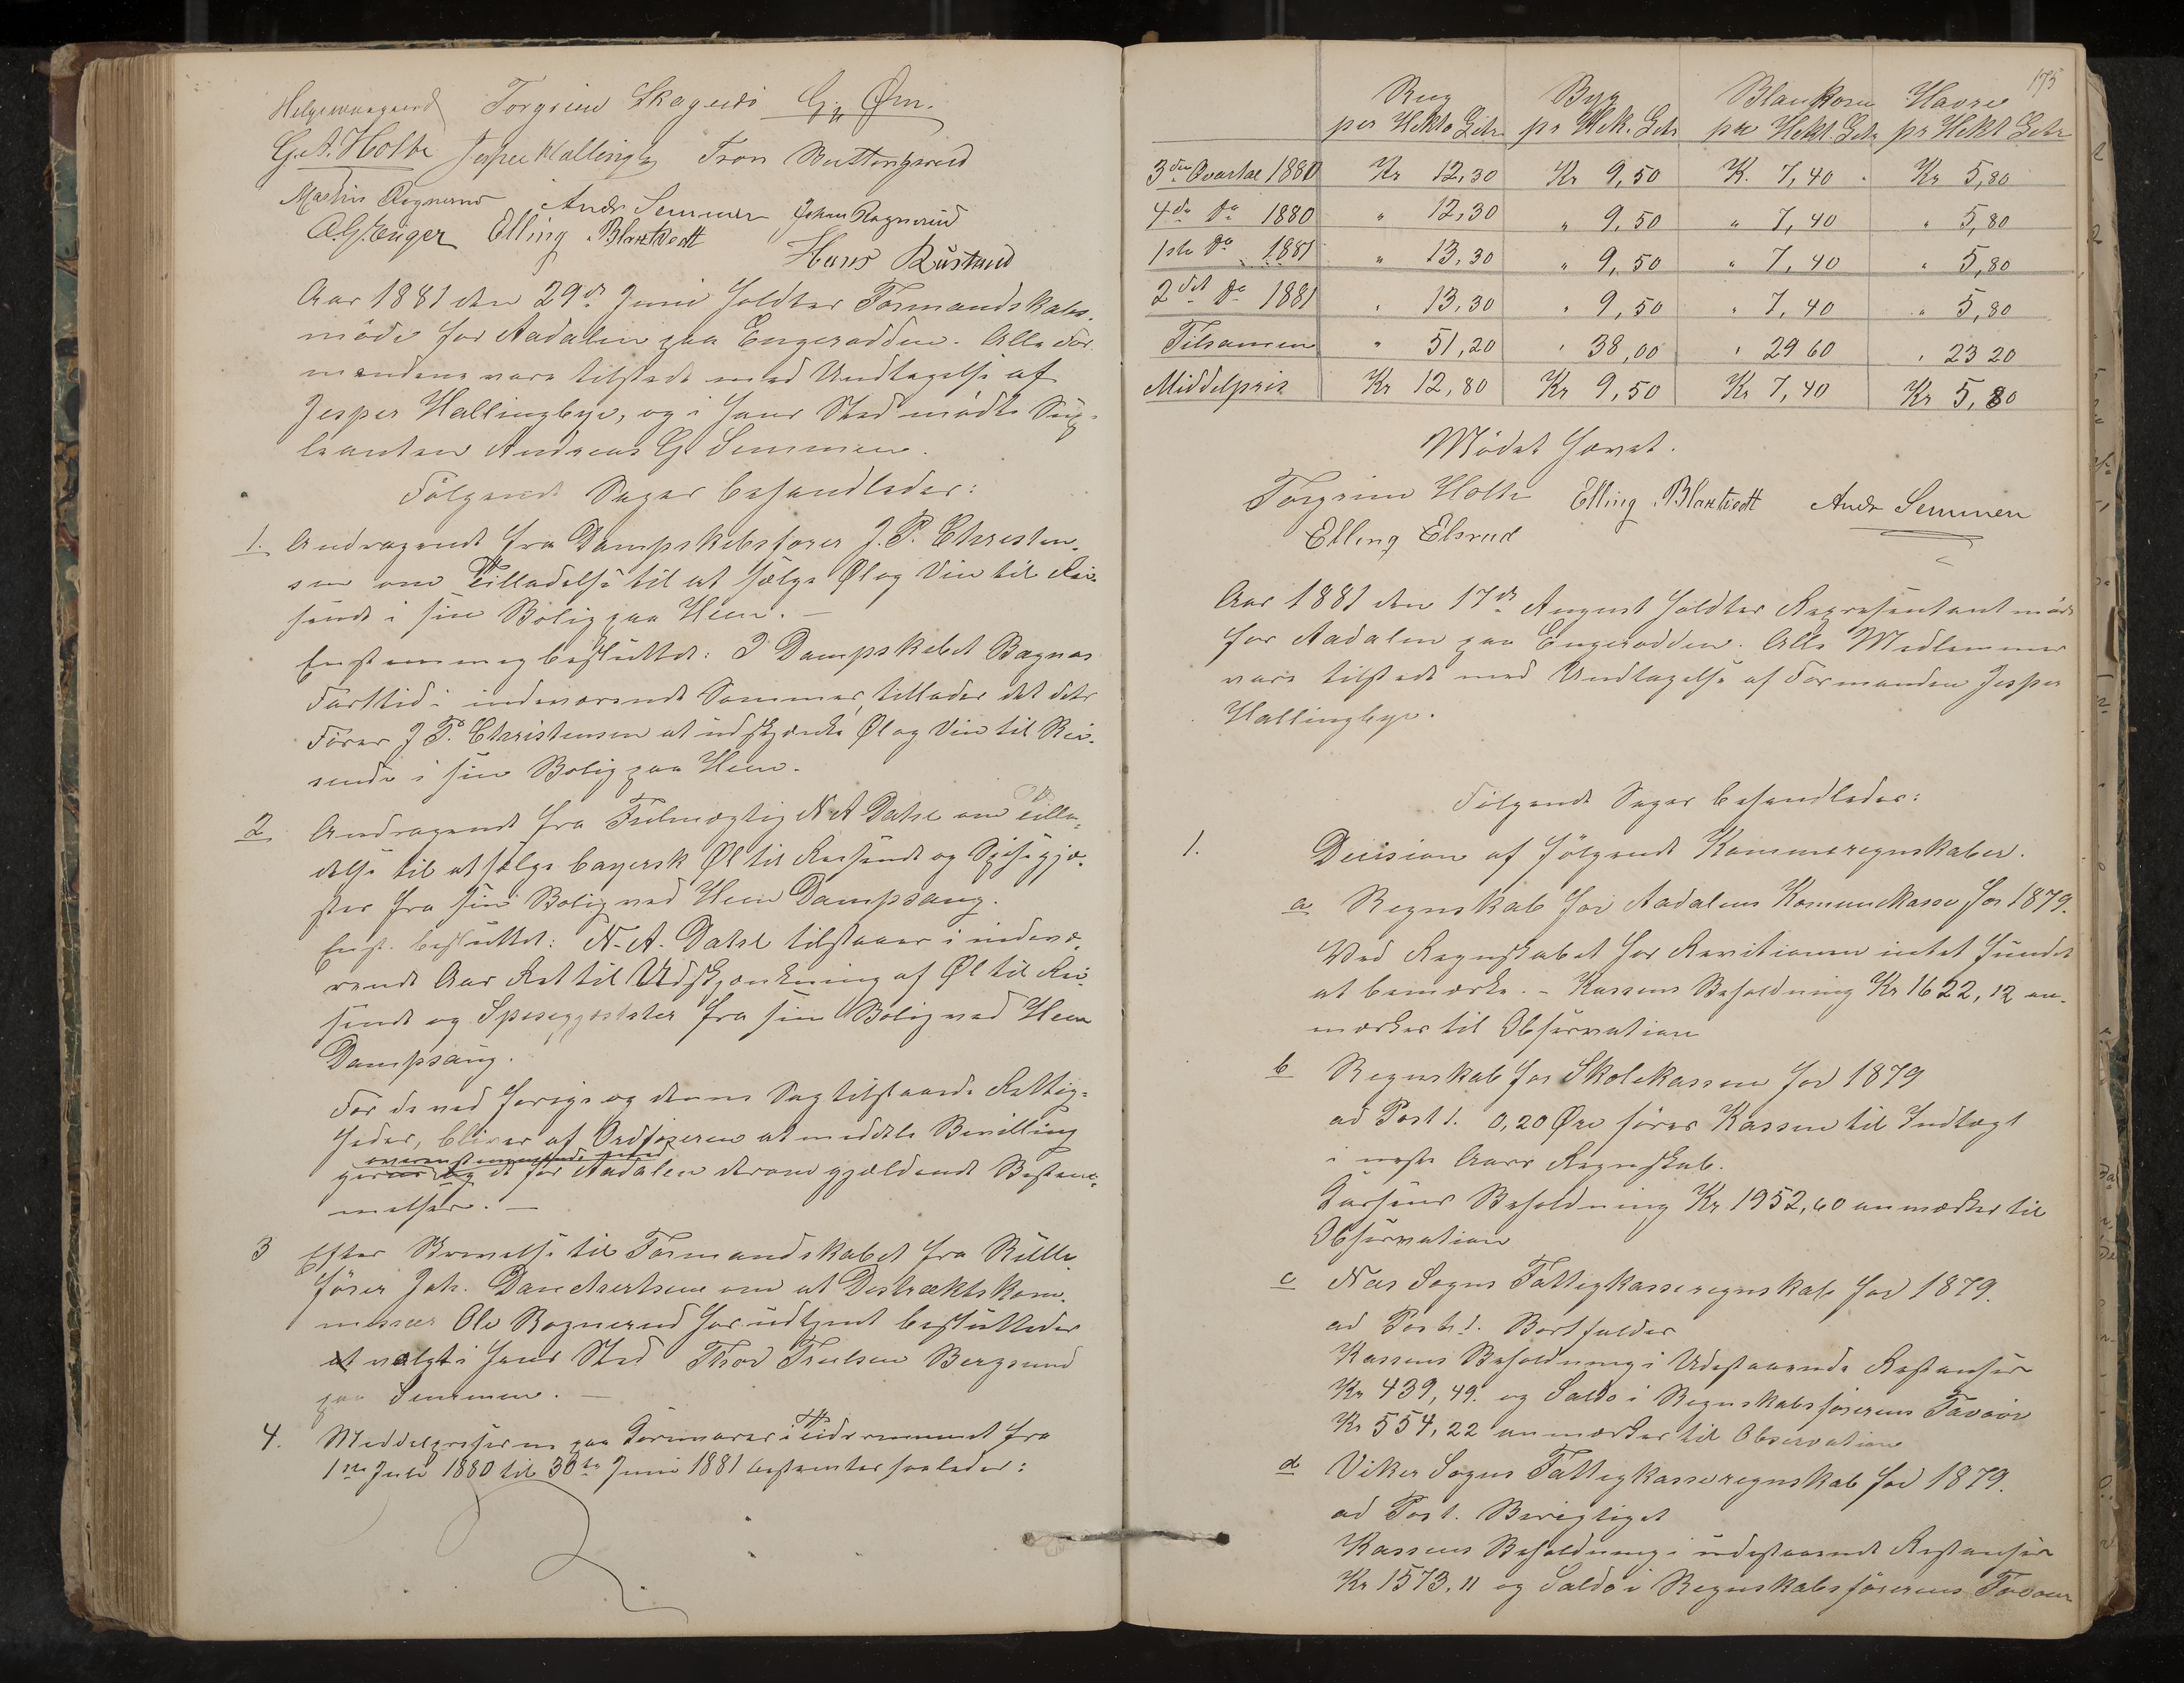 Helgerengaard Torgrim Skagnæs G. Øen.
G.A. Holte Jesper Hallingby Tron Buttingsrud
Martin Rognerud Andr Semmen Johan Rognerud
A.G. Enger Elling Blaksledt
Hans Rustand
Aar 1881 den 29de Juni holdtes Formandskabs-
möde for Aadalen paa Engerodden. Alle For
mændene vare tilstede med Undtagelse af
Jesper Hallingbye, og i hans Sted mødte Sup-
leanten Andreas G Semmen.
Fölgende Sager behandledes:
1. Andragende fra Dampskibsfører J. P. Christen-
sen om Tilladelse til at sælge Øl og Vin til Rei-
sende i sin Bolig paa Heen. —
Enstemmig besluttet: I Dampskibet Bægnas
Farttid i indeværende Sommer, tillades det dets
Förer J P. Christensen at udskjænke Øl og Vin til Rei-
sende i sin Bolig paa Heen.
2 Andragende fra Fulmægtig N A Dahl om Tilla-
delse til at sælge bayersk Øl til Reisende og Spisegjæ-
ster fra sin Bolig ved Heen Dampsaug.
Enst. besluttet: N. A. Dahl tilstaaes i indevæ-
rende Aar Ret til Udskjænkning af Øl til Rei-
sende og Spisegjæster fra sin Bolig ved Heen
Dampsaug.
For de ved forrige og denne Sag tilstaaede Rettig-
heder, bliver af Ordføreren at meddele Bevilling
overensstemmende med
de for Aadalen derom gjældende Bestem-
melser. —
3 Efter Skrivelse til Formandskabet fra Rulle
fører Joh. Danchertsen om at Distriktskom-
missær Ole Rognerud har udtjent besluttedes
at valgt i hans Sted Thor Trulsen Bergsund
paa Semmen. —
4. Middelpriserne paa Kornvarer i Tidsrummet fra
1ste Juli 1880 til 30te Juni 1881 bestemtes saaledes:
175
Rug Byg Blankorn Havre
per Hekto Litr pr Hek. Litr per Hekt. Litr pr Hekt Litr
3die Qvartal 1880 Kr 12,30 Kr 9,50 K. 7,40 Kr 5,80
4de do 1880 " 12,30 " 9,50 " 7,40 " 5,80
1ste do 1881 " 13,30 " 9,50 " 7,40 " 5,80
2det do 1881 " 13,30 " 9,50 " 7,40 " 5,80
Tilsamen " 51,20 " 38,00 " 29 60 " 23 20
Middelpris Kr 12,80 Kr 9,50 Kr 7,40 Kr 5,80
Mödet hævet.
Torgrim Holte Elling Blaksledt Andr Semmen
Elling Elsrud
Aar 1881 den 17de August holdtes Repræsentantmöde
for Aadalen paa Engerodden. Alle Medlemmer
vare tilstede med Undtagelse af Formanden Jesper
Hallingbye.
Fölgende Sager behandledes:
1. Decision af fölgende Kommuneregnskaber.
a Regnskab for Aadalens Komunekasse for 1879.
Ved Regnskabet har Revitionen intet fundet
at bemærke. - Kassens Beholdning Kr 1622,12 an-
mærkes til Observation
b Regnskab for Skolekassen for 1879
ad Post 1. 0,20 Øre föres Kassen til Indtægt
i næste Aars Regnskab.
Kassens Beholdning Kr 1952,60 anmærkes til
Observation
c Næs Sogns Fattigkasseregnskab for 1879.
ad Post 1. Bortfalder
Kassens Beholdning i Udestaaende Restanser
Kr 439,49. og Saldo i Regnskabsförerens Favør
Kr 554,22 anmærkes til Observation
d Viker Sogns Fattigkasseregnskab for 1879.
ad Post. Berigtiget
Kassens Beholdning i udestaaende Restanser
Kr 1573,11 og Saldo i Regnskabsförerens Favør